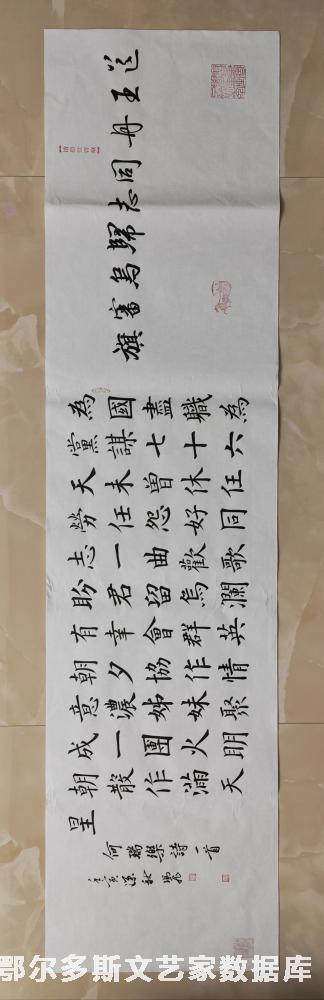 送王丹同志歸烏審旗
為國盡職為
黨謀七十六
天未曾休任
勞任怨好同
志一曲歡歌
盼君留烏瀾
有幸會群英
朝夕協作情
意濃姊妹聚
成一團火明
朝散作滿天
星
何瑞樂詩一首
寅深秋
鄂尔多斯文艺家数据库